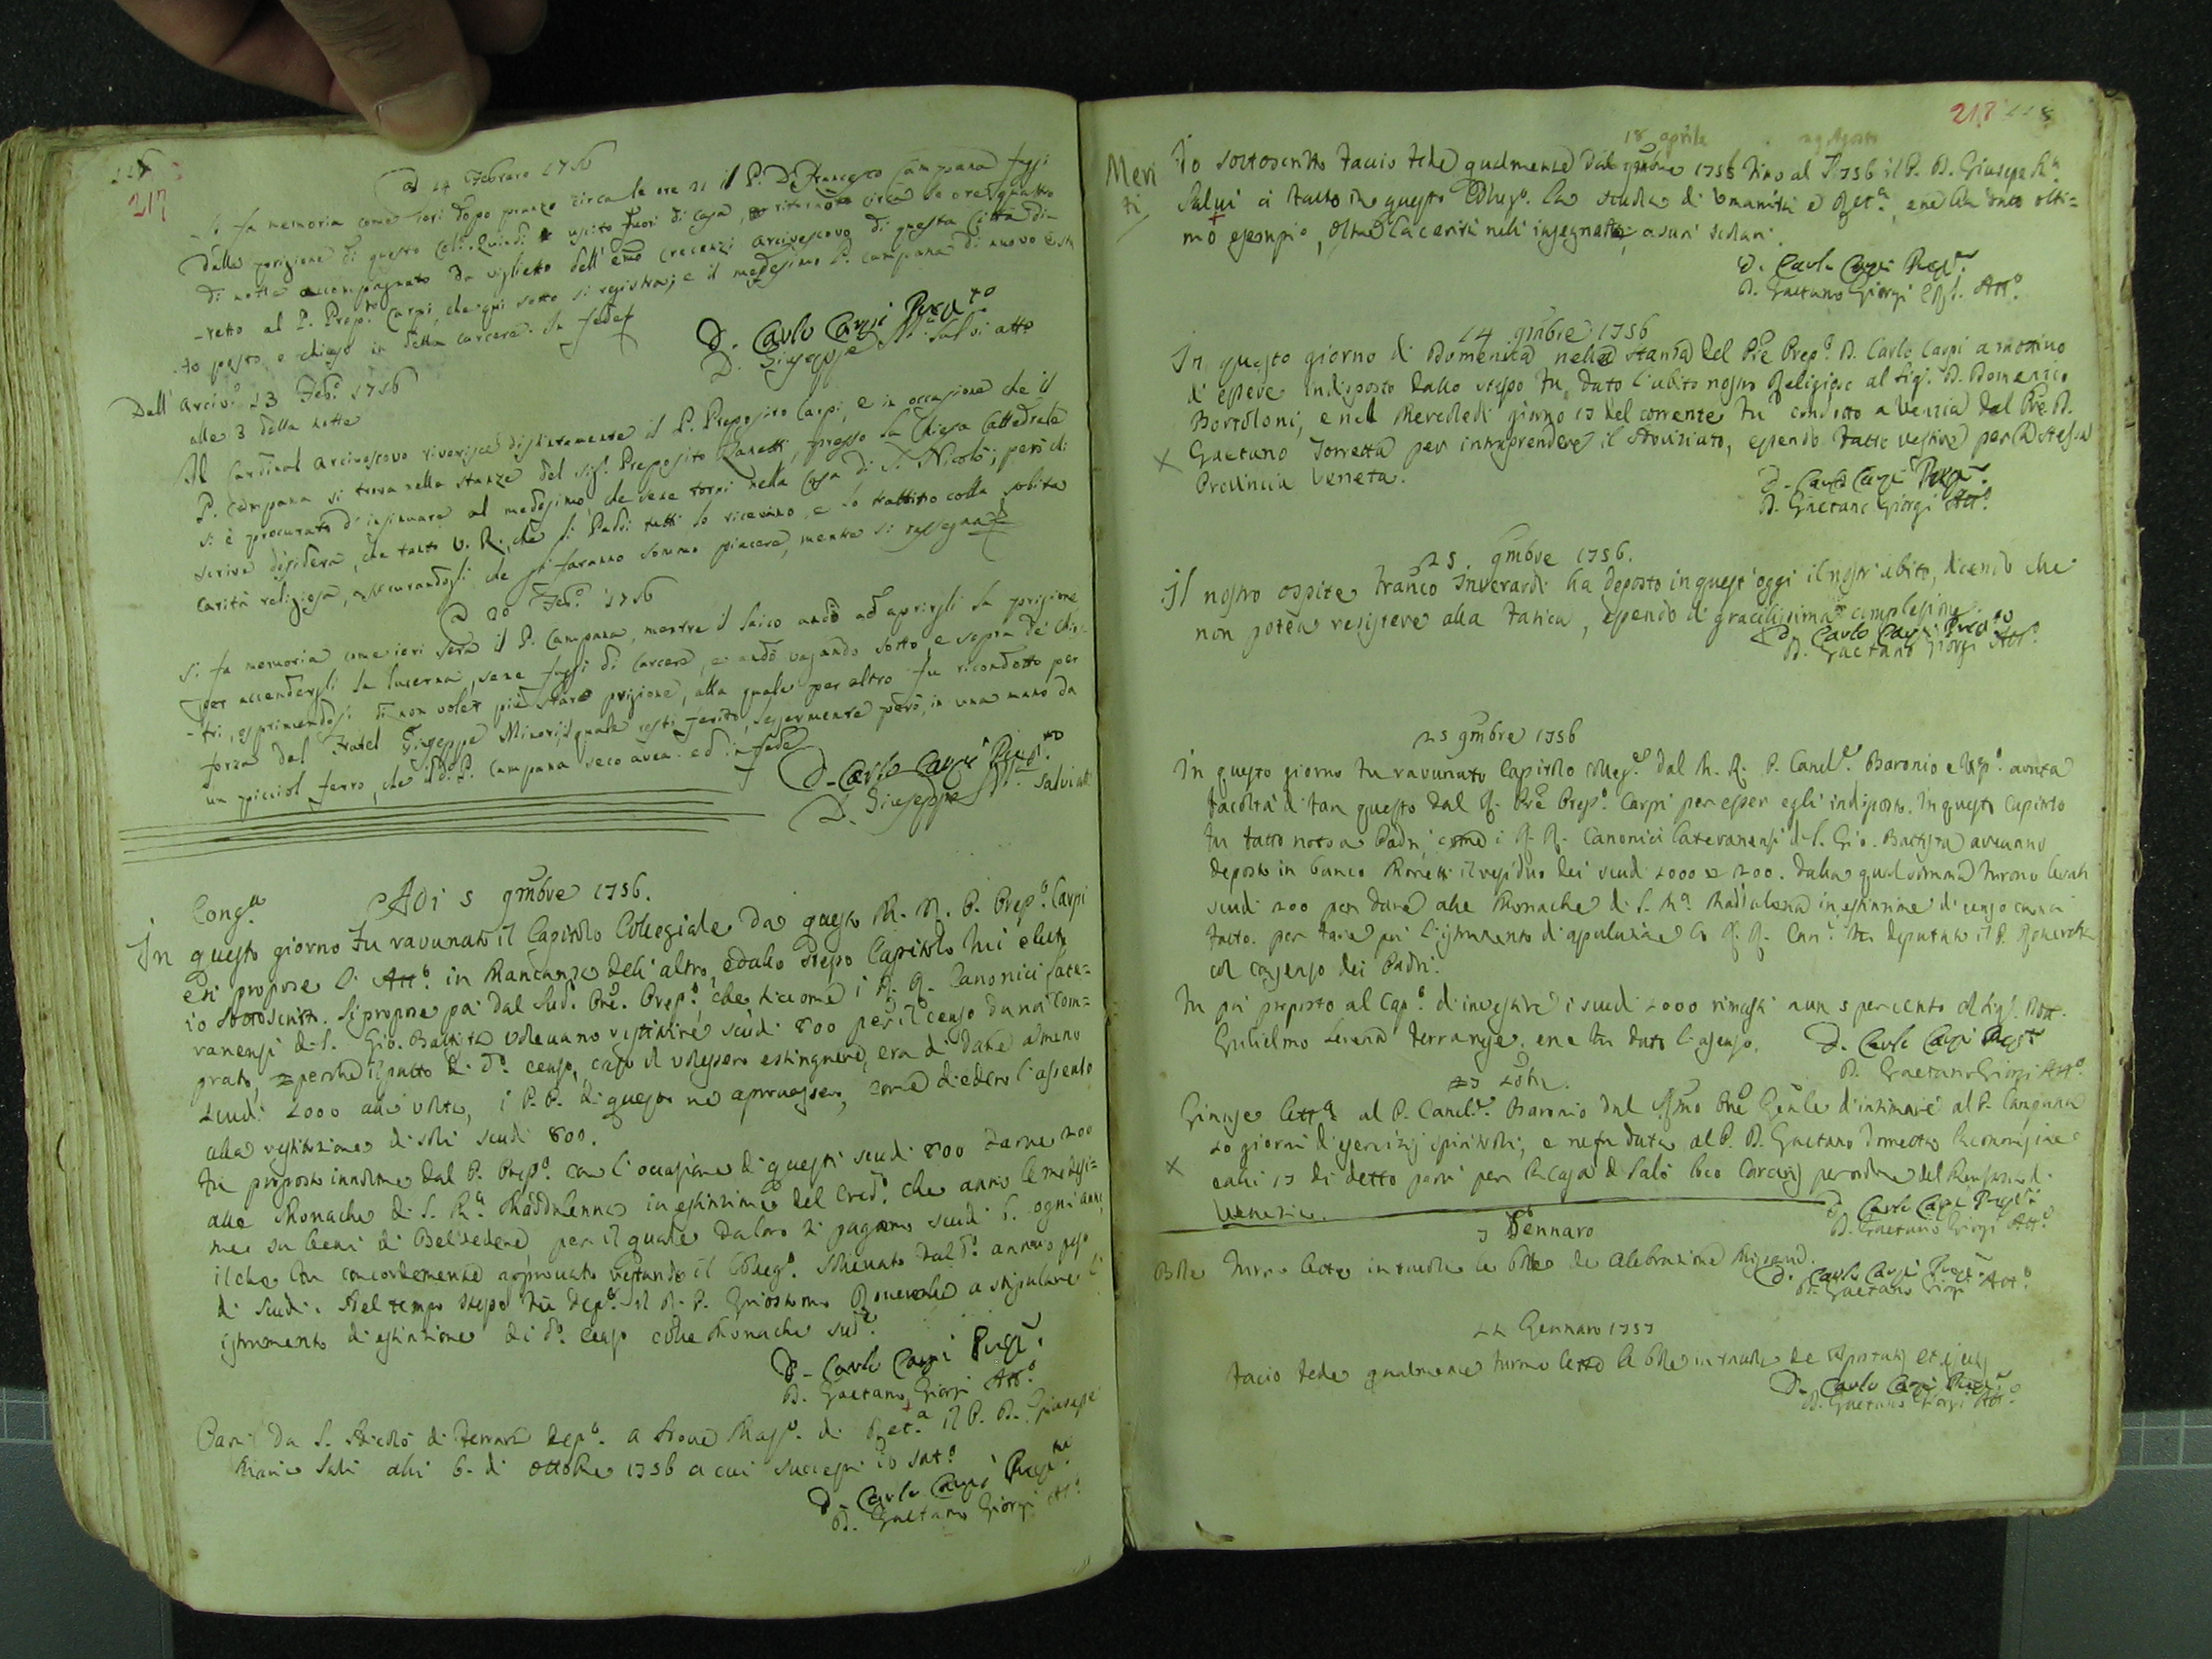 217
A 14 Febraro 1756
Si fa memoria come ieri dopo pranzo circa le ore 21 il P. D. Francesco Campana fuggì
dalla prigione di questo Coll.o Quindi uscito fuori di casa, ritornò circa le ore quattro
di notte accompagnato da viglietto dell'Emo Crecenzi Arcivescovo di questa Città di-
-retto al P. Prep.to Carpi, che qui sotto si registra; e il medesimo P. Campana di nuovo è sta
to posto, e chiuso in detta carcere. In fede
D. Carlo Carpi Prep.to
D. Giuseppe M.a Salvi atto
Dall'Arciv.o 13 Feb.o 1756
alle 3 della notte
Il Cardinal Arcivescovo riverisce distintamente il P. Preposito Carpi, e in occasione che il
P. Campana si trova nelle stanze del sig.r Preposito Zanetti, presso la Chiesa Cattedrale
si è procurato d'insinuare al medesimo, che sene torni nella Casa di S. Nicolò; però chi
scrive desidera, che tanto V. R. che li Padri tutti lo ricevino, e lo trattino colla solita
carità religiosa, assicurandogli che gli faranno sommo piacere, mentre si rassegna
A 20 Feb.o 1756
Si fa memoria come ieri sera il P. Campana, mentre il laico andò ad aprirgli la prigione
per accendergli la lucerna, sene fuggì di carcere, e andò vagando sotto, e sopra de' chio-
-tri, esprimendosi di non voler più stare prigione, alla quale per altro fu ricondotto per
forza dal Fratel Giuseppe Minori, il quale restò ferito, leggermente però, in una mano da
un picciol ferro, che il d.o P. Campana seco avea. ed in fede
D. Carlo Carpi Prep.to
D. Giuseppe M.a Salvi att.
Cong.a
Adi 5 9mbre 1756.
In questo giorno fu ravunato il Capitolo Collegiale da questo M. R. P. Prep.o Carpi
e si propose l'Att.o in mancanza dell'altro, e dallo stesso Capitolo fui eletto
io sottoscritto. Si propose poi dal sud.o Pre. Prep.o, che siccome i R. R. Canonici Late-
ranensi di S. Gio. Battista volevano restituire scudi 800 per il censo da noi com-
prato, perchè il patto di d.o censo, caso il volessero estinguere, era di dare almeno
scudi 1000 alla volta, i P. P. di questo ne aprovassero, come diedero l'assenso
alla restituzione di soli scudi 800.
Fu proposto inoltre dal P. Prep.o con l'occasione di questi scudi 800 darne 200
alle Monache di S. M.a Maddalenna in estinzione del Cred.o che anno le medesi-
me su beni di Belvedere, per il quale da loro si pagano scudi 8. ogni anno,
il che fu concordemente approvato restando il Colleg.o sollevato dal d.o annuo peso
di scudi. Nel tempo stesso fu dep.o il R. P. Grisostomo Roverelle a stipulare l'
istrumento di estinzione di d.o censo colle Monache sud.e
D. Carlo Carpi Prep.o
D. Gaetano Giorgi Att.o
Partì da S. Nicolò di Ferrara dep.o a Trove Mas.o di Ret.a il P. D. Giuseppe
Maria Salvi alli 6. di Ottobre 1756 a cui successi io sot.o
D. Carlo Carpi Prep.to
D. Gaetano Giorgi At.o
218
18 aprile
29 Agosto
Meri
ti
Io sottoscritto faccio fede qualmente dal 9mbre 1755 fino al 1756 il P. D. Giusepe M.a
Salvi à fatto in questo Colleg.o la scuola di Umanità e Ret.a, e ne ha dato otti=
mo esempio, oltre la carità nell'insegnare a suoi scolari.
D. Carlo Carpi Prep.to
D. Gaetano Giorgi Att.o
14 9mbre 1756
In questo giorno di Domenica nella stanza del Pre Prep.o D. Carlo Carpi a motivo
d'essere indisposto dallo stesso fu dato l'abito nostro Religioso al Sig.r D. Domenico
Bortoloni, e nel Mercoledì giorno 17 del corrente fu condotto a Venezia dal Pre D.
Gaetano Torretta per intraprendere il Noviziato, essendo stato vestito per la stessa
Provincia Veneta.
D. Carlo Carpi Prep.o
D. Gaetano Giorgi Att.o
25. 9mbre 1756.
Il nostro ospite Franco Inverardi ha deposto in quest'oggi il nostr'abito, dicendo che
non potea resistere alla fatica, essendo di gracilissima complesione.
D. Carlo Carpi Prep.to
D. Gaetano Giorgi Att.o
25 9mbre 1756
In questo giorno fu ravunato Capitolo Colleg.e dal M. R. P. Canc.e Baronio avuta
facoltà di far questo dal R. Pre Prep.o Carpi per esser egli indisposto. In questo Capitolo
fu fatto noto a Padri, come i R. R. Canonici Lateranensi di S. Gio. Battista aveano
deposto in banco Moretti il residuo dei scudi 1000 e 200. Dalla qual somma furono levati
scudi 200 per dare alle Monache di S. M.a Maddalena in estinzione di censo
fatto. per fare poi l'istrumento fu deputato il P. Roverelle
col consenso dei Padri.
Fu poi proposto al Cap.o di investire i scudi 1000 rimasti a un 5 per cento al Sig.r Dott.
Gulielmo ferrarese. e ne fu dato l'assenso.
D. Carlo Carpi Prep.to
D. Gaetano Giorgi Att.o
Giunse lett.a al P. Canc.e Baronio dal Rmo Pre Gen.le d'intimare al P. Campana
10 giorni d'esercizj spirituali; e ne fu data al P. D. Gaetano Torretta la comissione
e alli 17 di detto partì per la casa di Salò loco Carceris per ordine del
Venezia.
D. Carlo Carpi Prep.to
D. Gaetano Giorgi Att.o
7 Gennaro
Bolle Furono lette in tavola le bolle de celebratione Missarum.
D. Carlo Carpi Prep.to
D. Gaetano Giorgi Att.o
22 Gennaro 1757
Facio fede qualmente furono lette le bolle in tavola de Apostatis et ejectis
D. Carlo Carpi Prep.to
D. Gaetano Giorgi Att.o